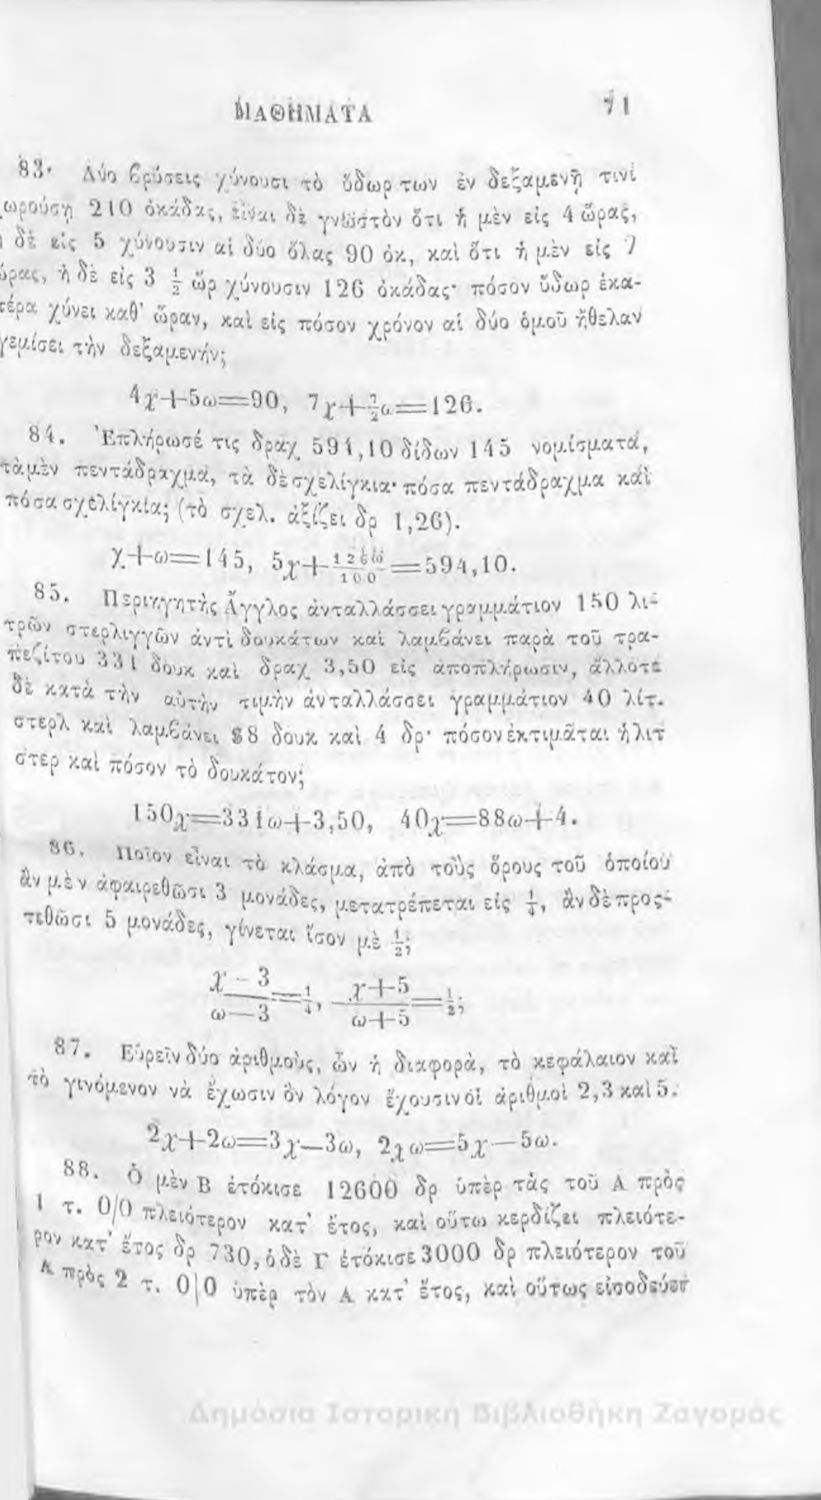 ΜΑΘΗΜΑΤΑ 71
83· Δύο βρύσεις χύνουσι τὸ ὕδωρ των ἐν δεξαμενῇ τινὶ
χωρούσῃ 210 ὀκάδας, εἶναι δὲ γνωστὸν ὅτι ἡ μὲν εἰς 4 ὥρας,
ἡ δὲ εἰς 5 χύνουσιν αἱ δύο ὅλας 90 ὀκ, καὶ ὅτι ἡ μὲν εἰς 7
ὥρας, ἡ δὲ εἰς 3 ½ ὥρ χύνουσιν 126 ὀκάδας· πόσον ὕδωρ ἑκα-
τέρα χύνει καθ᾽ ὥραν, καὶ εἰς πόσον χρόνον αἱ δύο ὁμοῦ ἤθελαν
γεμίσει τὴν δεξαμενήν;
4χ+5ω=90, 7χ+7/2ω=126.
84. Ἐπλήρωσέ τις δραχ 594,10 δίδων 145 νομίσματα,
τὰ μὲν πεντάδραχμα, τὰ δὲ σχελίγκια· πόσα πεντάδραχμα καὶ
πόσα σχελίγκια; (τὸ σχελ. ἀξίζει δρ 1,26).
χ+ω=145, 5χ+126ω/100=594,10.
85. Περιηγητὴς Ἄγγλος ἀνταλλάσσει γραμμάτιον 150 λι-
τρῶν στερλιγγῶν ἀντὶ δουκάτων καὶ λαμβάνει παρὰ τοῦ τρα-
πεζίτου 331 δουκ καὶ δραχ 3,50 εἰς ἀποπλήρωσιν, ἄλλοτε
δὲ κατὰ τὴν αὐτὴν τιμὴν ἀνταλλάσσει γραμμάτιον 40 λίτ.
στερλ καὶ λαμβάνει 88 δουκ καὶ 4 δρ· πόσον ἐκτιμᾶται ἡ λιτ
στερ καὶ πόσον τὸ δουκάτον;
150χ=331ω+3,50, 40χ=88ω+4.
86. Ποῖον εἶναι τὸ κλάσμα, ἀπὸ τοὺς ὅρους τοῦ ὁποίου
ἂν μὲν ἀφαιρεθῶσι 3 μονάδες, μετατρέπεται εἰς ¼, ἂν δὲ προς-
τεθῶσι 5 μονάδες, γίνεται ἴσον μὲ ½;
χ-3/ω-3=¼, χ+5/ω+5=½;
87. Εὑρεῖν δύο ἀριθμοὺς, ὧν ἡ διαφορὰ, τὸ κεφάλαιον καὶ
τὸ γινόμενον νὰ ἔχωσιν ὃν λόγον ἔχουσιν οἱ ἀριθμοὶ 2,3 καὶ 5.
2χ+2ω=3χ-3ω, 2χω=5χ-5ω.
88. Ὁ μὲν Β ἐτόκισε 12600 δρ ὑπὲρ τὰς τοῦ Α πρὸς
1 τ. 0/0 πλειότερον κατ᾽ ἔτος, καὶ οὕτω κερδίζει πλειότε-
ρον κατ᾽ ἔτος δρ 730, ὁ δὲ Γ ἐτόκισε 3000 δρ πλειότερον τοῦ
Α πρὸς 2 τ. 0|0 ὑπὲρ τὸν Α κατ᾽ ἔτος, καὶ οὕτως εἰσοδεύει
Δημόσια Ιστορική Βιβλιοθήκη Ζαγοράς